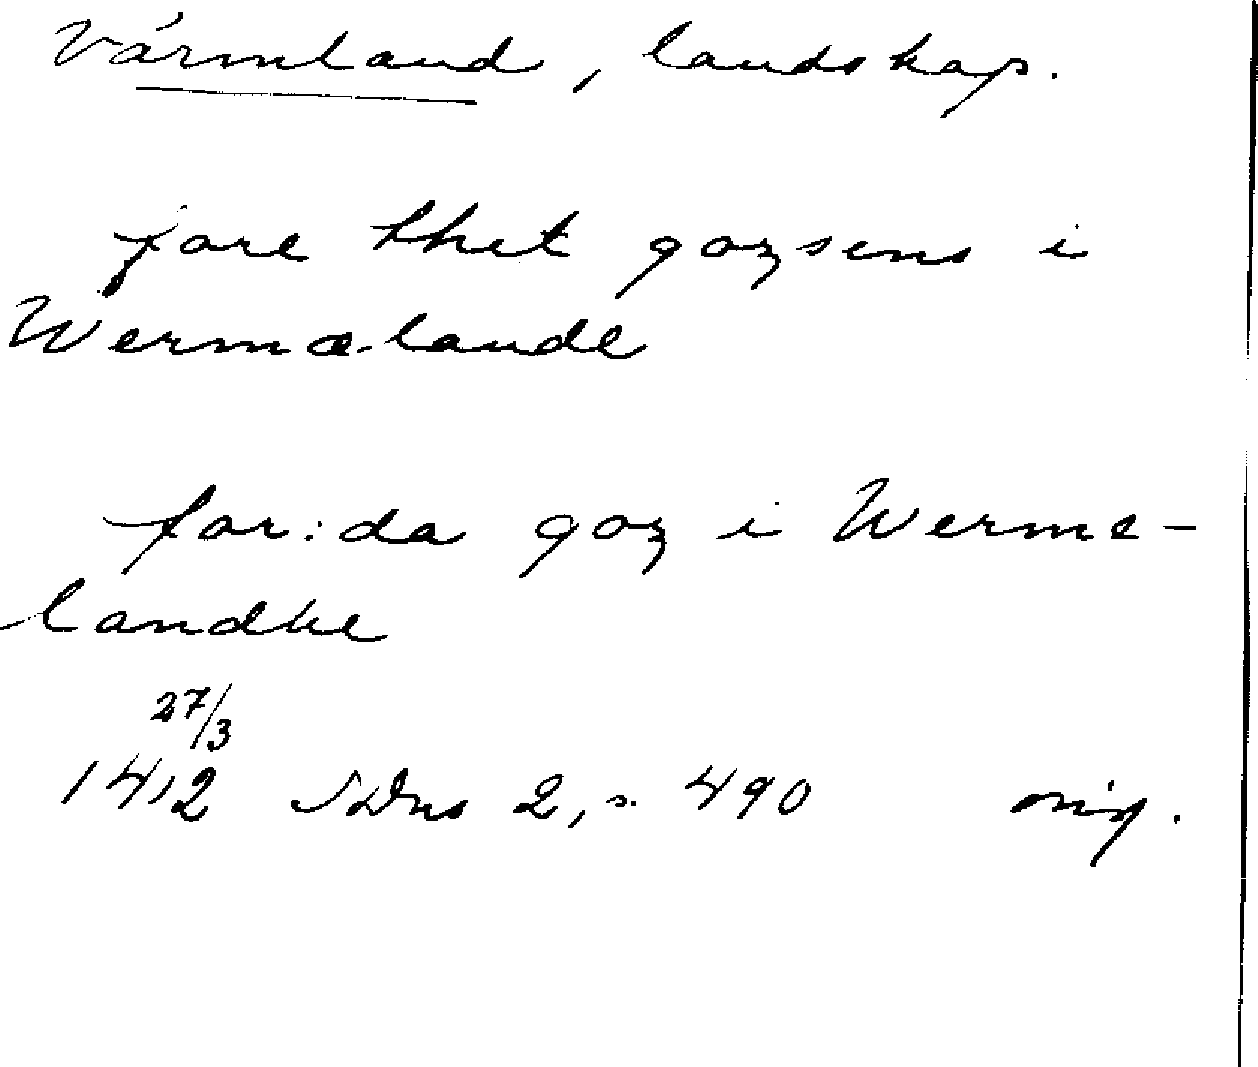 Värmland, landskap.
fore thet gozsens i
Wermælande
for:da goz i Werme-
landhe
27/3
1412 SDns 2, s. 490 orig.